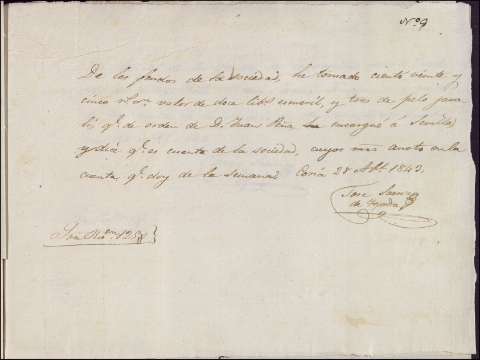 Nº 9
De los fondos de la sociedad, he tomado ciento veinte y
cinco rs. vn. valor de doce libs. esmeril, y tres de pelo para
q.e de orden de D. Juan Peña he encargué á Sevilla,
y dice q.e es cuenta de la sociedad, cuyos anoto en la
cuenta q.e doy de la semana. Coria 28 Abl. 1843.
Jose
de
Son Rs. vn. 125